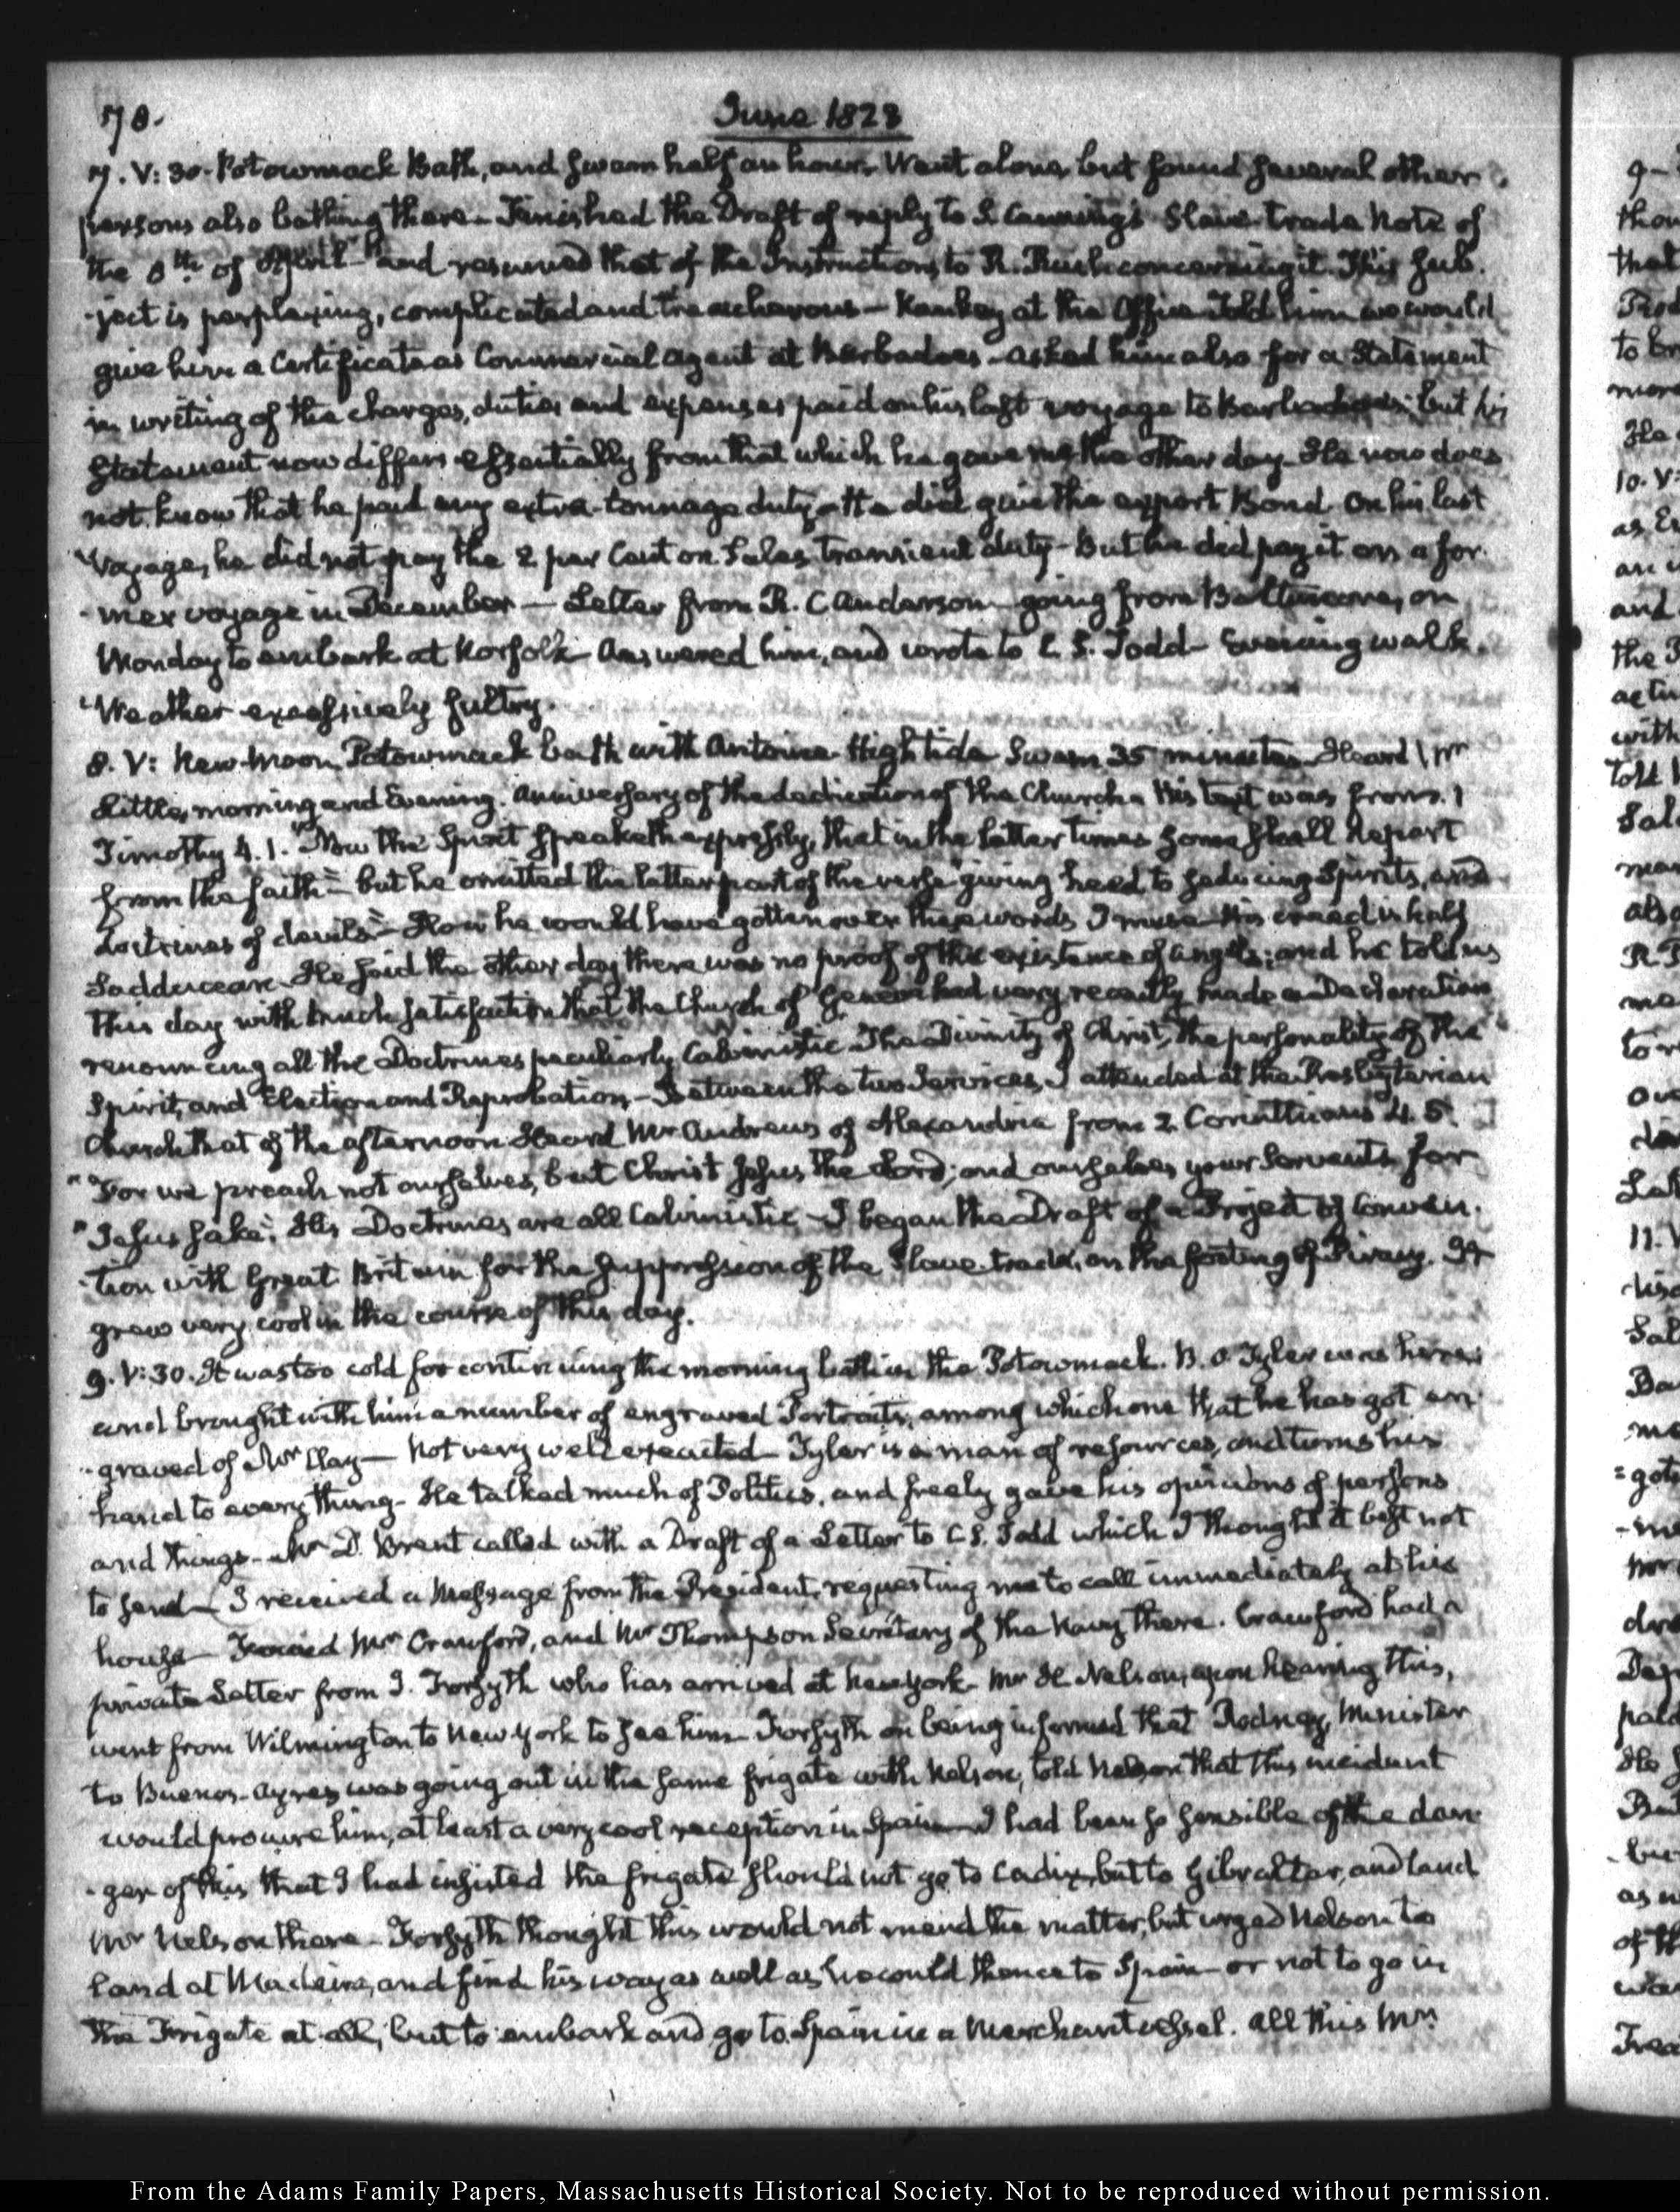 78.
June 1823
7. V: 30. Potowmack Bath, and swam half an hour. Went alone, but found several other
persons also bathing there. Finished the Draft of reply to S. Canning's Slave-trade Note of
the 8th. of April and resumed that of the Instructions to R. Rush concerning it. This sub-
-ject is perplexing, complicated and treacherous — Kankey at the Office. Told him we would
give him a Certificate as Commercial Agent at Barbadoes — asked him also for a Statement
in writing of the charges, duties and expenses paid on his last voyage to Barbadoes; but his
Statement now differs essentially from that which he gave me the other day. He now does
not know that he paid any extra-tonnage duty. He did give the export Bond. On his last
Voyage, he did not pay the 2 per Cent on Sales transient duty. But he did pay it on a for-
-mer voyage in December — Letter from R. C. Anderson going from Baltimore, on
Monday to embark at Norfolk. Answered him, and wrote to C. S. Todd — Evening walk.
Weather excessively sultry.
8. V: New-Moon. Potowmack bath with Antoine. High tide. Swam 35 minutes. Heard Mr
Little, morning and Evening. Anniversary of the dedication of the Church. His text was from 1
Timothy 4. 1. "Now the Spirit speaketh expressly, that in the latter times some shall depart
from the faith" — but he omitted the latter part of the verse "giving heed to seducing Spirits, and
doctrines of devils" — How he would have gotten over these words I muse. His creed is half
Sadducean. He said the other day there was no proof of the existence of angels; and he told us
this day with much satisfaction that the Church of Geneva had very recently made a Declaration
renouncing all the Doctrines peculiarly Calvinistic. The Divinity of Christ, the personality of the
Spirit, and Election and Reprobation. — Between the two Services, I attended at the Presbyterian
Church that of the afternoon. Heard Mr Andrews of Alexandria from 2. Corinthians 4. 5.
"For we preach not ourselves, but Christ Jesus the Lord; and ourselves your Servants for
"Jesus sake". His Doctrines are all Calvinistic — I began the Draft of a Project of Conven-
-tion with Great Britain for the suppression of the Slave trade, on the footing of Piracy. It
grew very cool in the course of this day.
9. V: 30. It was too cold for continuing the morning bath in the Potowmack. B. O. Tyler was here
and brought with him a number of engraved Portraits, among which one that he has got en-
-graved of Mr Clay — Not very well executed — Tyler is a man of resources, and turns his
hand to every thing — He talked much of Politics, and freely gave his opinions of persons
and things — Mr D. Brent called with a Draft of a Letter to C. S. Todd which I thought it best not
to send — I received a Message from the President, requesting me to call immediately at his
house — Found Mr Crawford, and Mr Thompson Secretary of the Navy there. Crawford had a
private Letter from J. Forsyth who has arrived at New York — Mr H. Nelson, upon hearing this,
went from Wilmington to New York to see him — Forsyth on being informed that Rodney, Minister
to Buenos-Ayres was going out in the same frigate with Nelson, told Nelson that this incident
would procure him, at least a very cool reception in Spain — I had been so sensible of the dan-
-ger of this that I had insisted the frigate should not go to Cadix, but to Gibraltar, and land
Mr Nelson there — Forsyth thought this would not mend the matter, but urged Nelson to
land at Madeira, and find his way as well as he could thence to Spain — or not to go in
the Frigate at all, but to embark and go to Spain in a Merchant vessel. All this Mr
From the Adams Family Papers, Massachusetts Historical Society. Not to be reproduced without permission.